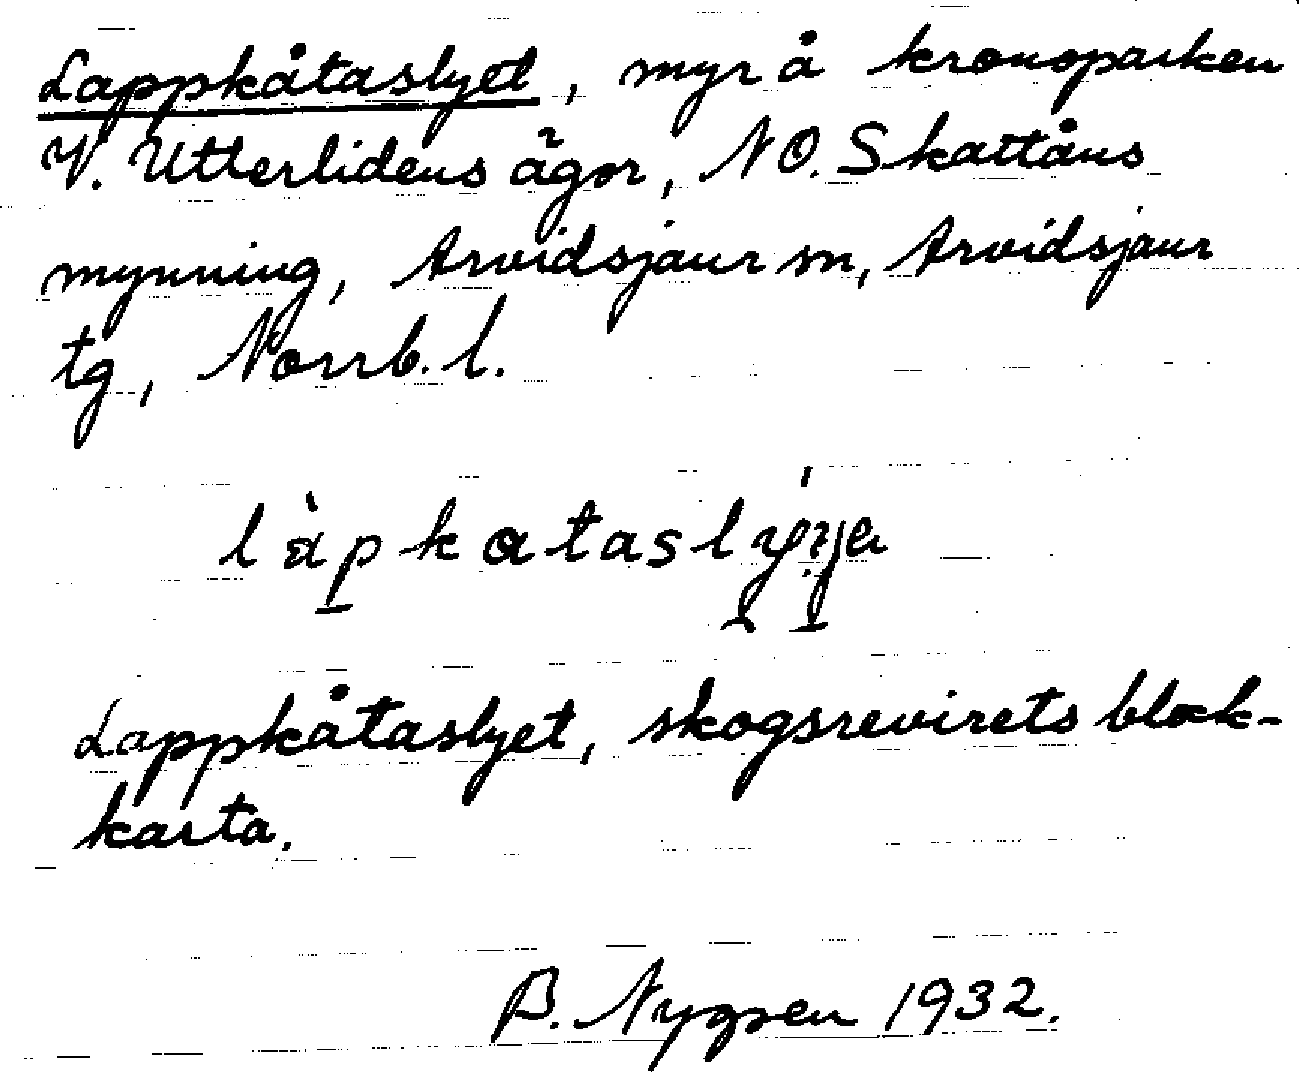 Lappkåtaslyet, myr å kronoparken
V. Utterlidens ägor, NO. Skattåns
mynning, Arvidsjaur sn, Arvidsjaur
tg, Norrb. l.
Lappkåtaslyet, skogsrevirets block-
karta.
B. Nygren 1932.